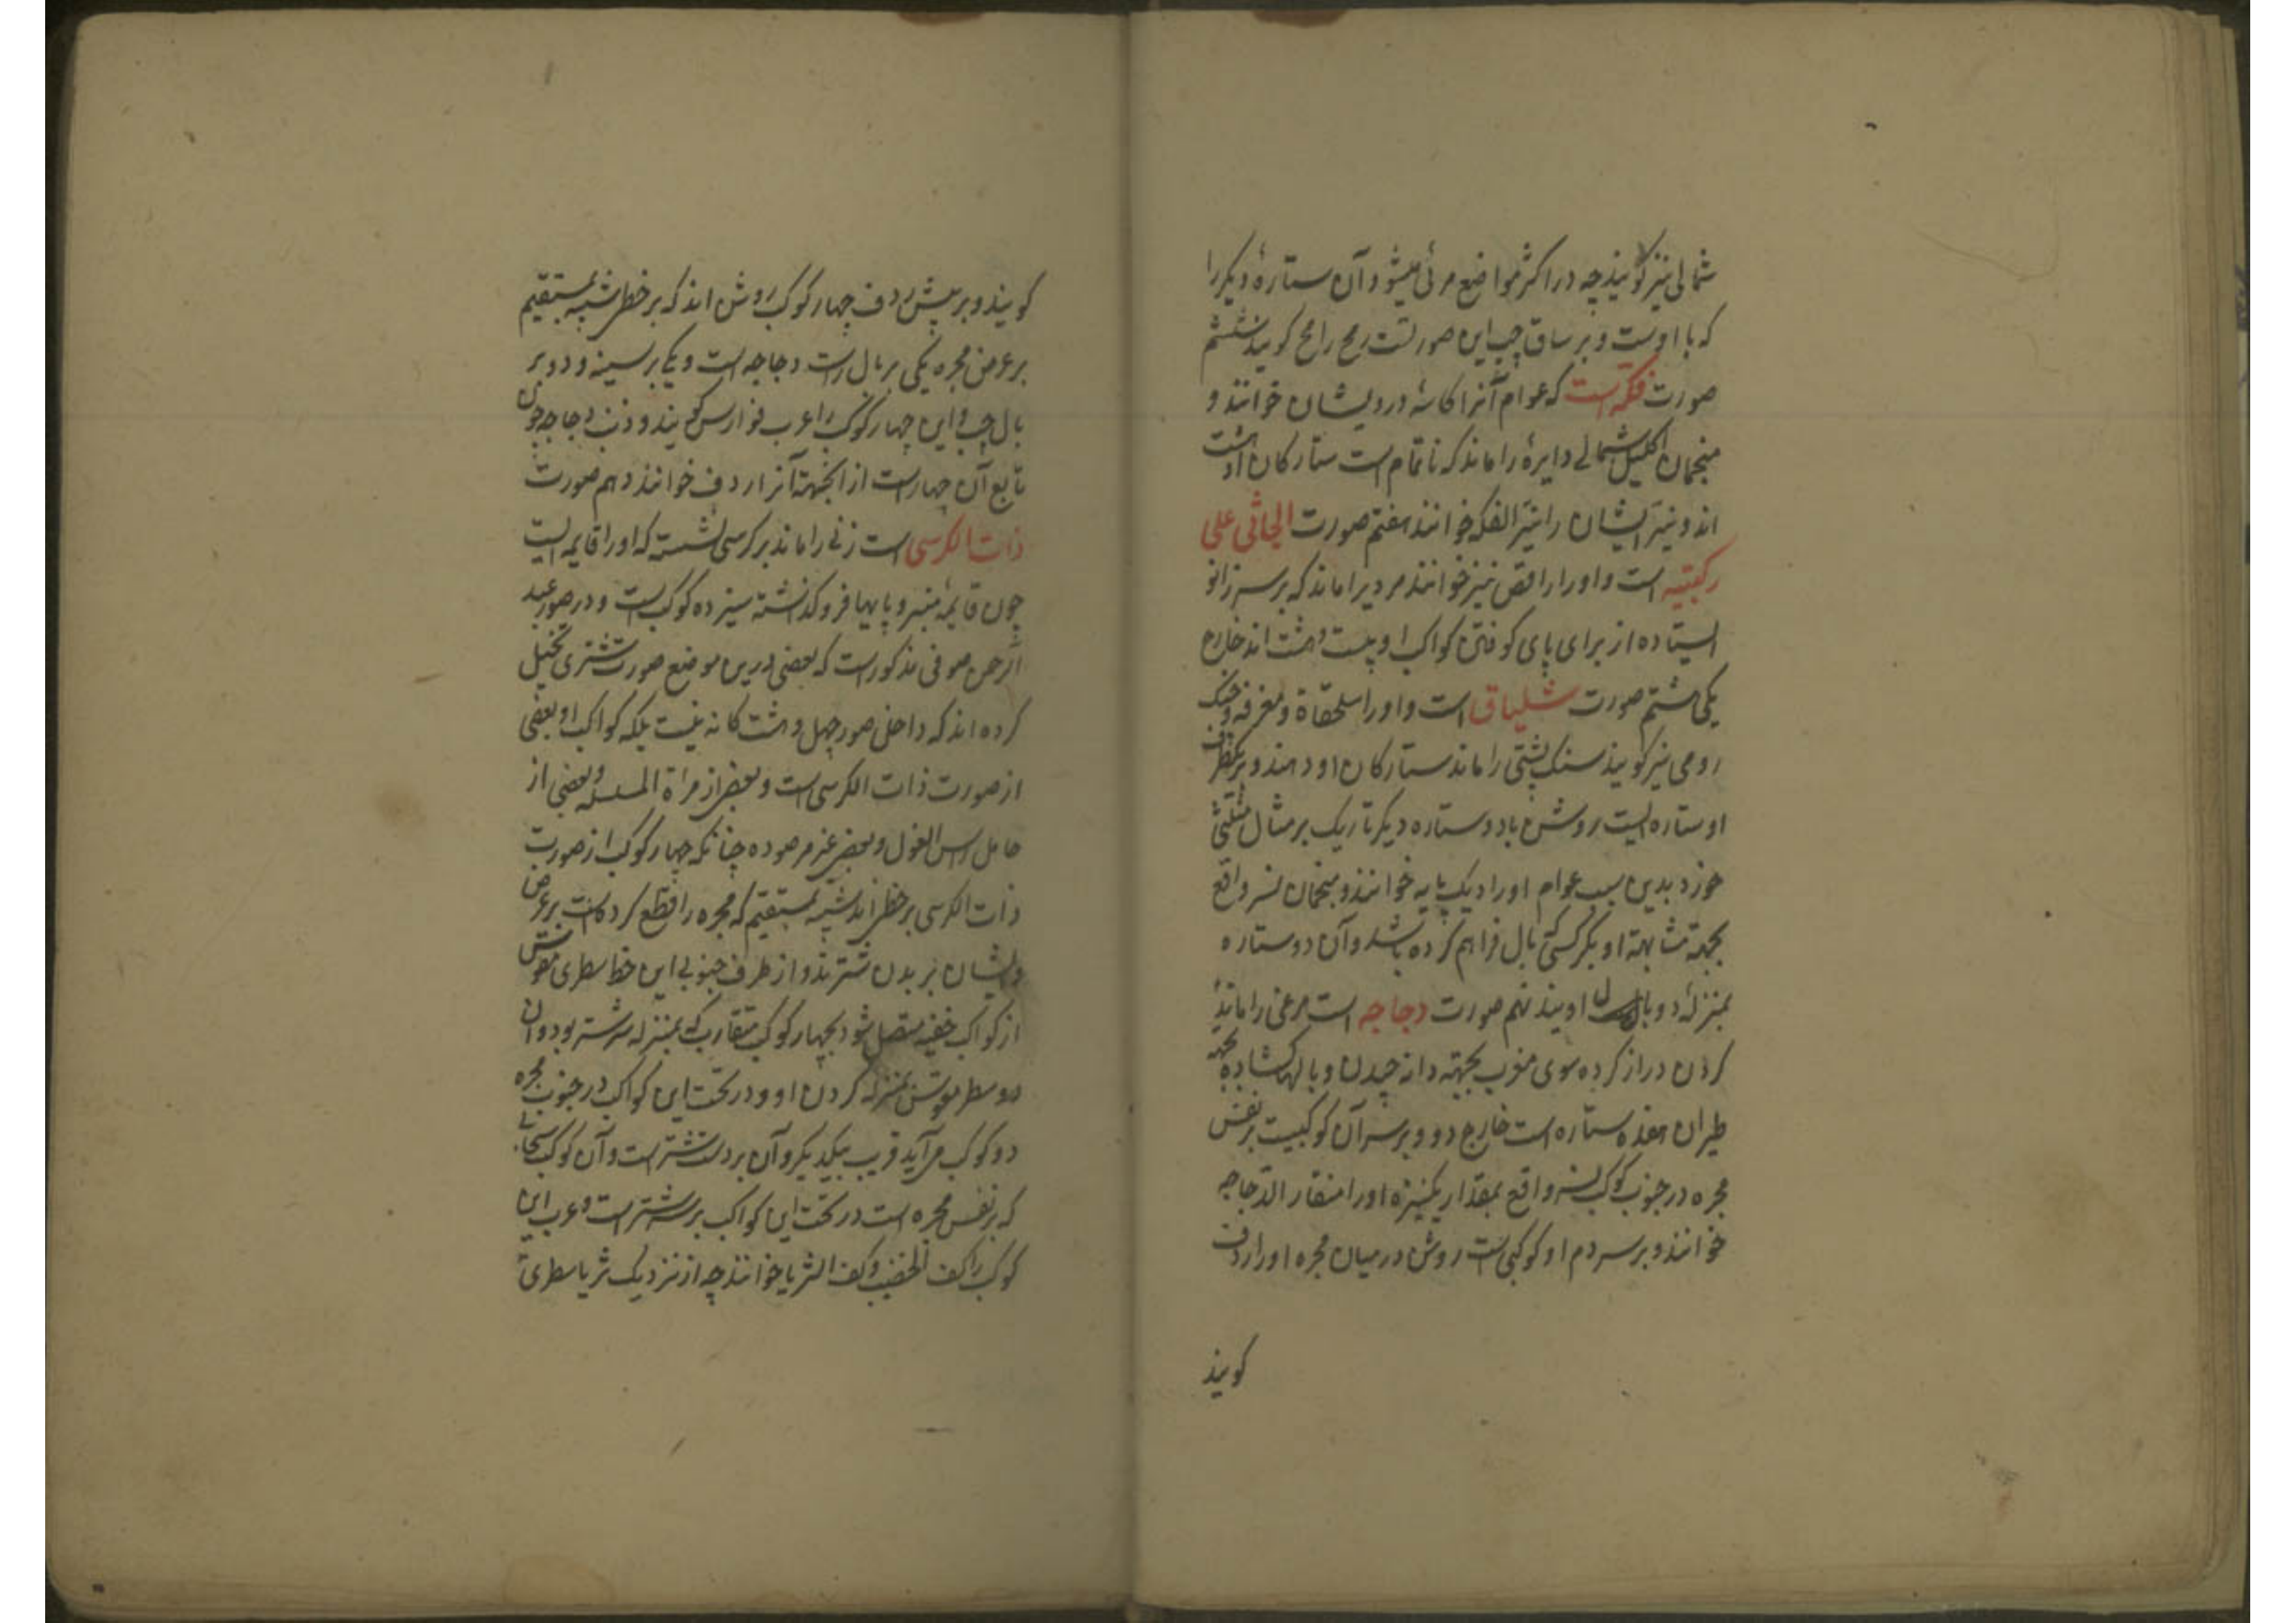 شمالی نیز کویند چه در اکثر مواضع مرئی میشود و آن ستارهٔ دیکر را
که با اوست و بر ساق چپ این صورتست رمح رامح کویند ششم
صورت فکه است که عوام آنرا کاسهٔ درویشان خوانند و
منجمان اکلیل شمالی دایرهٔ را ماند که ناتمام است ستارکان او هشت
اند و نیر ایشان را نیر الفکه خوانند هفتم صورت الجاثی علی
رکبتیه است و او را راقص نیز خوانند مردیرا ماند که بر سر زانو
ایستاده از برای پای کوفتن کواکب او بیست و هشت اند خارج
یکی هشتم صورت شلیاق است و او را سلحفاة و معزفه و چنک
رومی نیز کویند سنک پشتی را ماند ستارکان او دهند و بر
او ستاره ایست روشن با دو ستاره دیکر تاریک بر مثال مثلثی
خورد بدین سبب عوام او را دیک پایه خوانند و منجمان نسر واقع
بجهة مشابهة او بکرکسی که بال فراهم کرده باشد و آن دو ستاره
بمنزلهٔ دو بال اویند نهم صورت دجاجه است مرغی را ماند
کردن دراز کرده سوی مغرب بجهته دانه چیدن و بالها کشاده بجهة
طیران هفده ستاره است خارج دو و بر سر آن کوکبیست بر نفس
مجره در جنوب کوکب نسر واقع بمقدار یکنیزه او را منقار الدجاجه
خوانند و بر سر دم او کوکبی است روشن در میان مجره او را ردف
کویند
کویند و بر پیش ردف چهار کوکب روشن اند که بر خطی شبیه بمستقیم
بر عرض مجره یکی بر بال راست دجاجه است و یکی بر سینه و دو بر
بال چپ و این چهار کوکب را عرب فوارس کویند و ذنب دجاجه چون
تابع آن چهار است از انجهته آنرا ردف خوانند دهم صورت
ذات الکرسی است زنی را ماند بر کرسی نشسته که او را قایمه ایست
چون قایمهٔ منبر و پایها فرو کذاشته سیزده کوکب است و در صور عبد
الرحمن صوفی مذکور است که بعضی درین موضع صورت شتری تخیل
کرده اند که داخل صور چهل و هشت کانه نیست بلکه کواکب او بعضی
از صورت ذات الکرسی است و بعضی از مراة المسلسله و بعضی از
حامل راس الغول و بعضی غیر مرصوده چنانکه چهار کوکب از صورت
ذات الکرسی بر خطی اند شبیه بمستقیم که مجره را قطع کرده است بر عرض
و ایشان بر بدن شترند و از طرف جنوبی این خط سطری مقوس
از کواکب خفیه متصل شود بچهار کوکب متقارب که بمنزله سر شتر بود و آن
دو سطر مقوس بمنزله کردن او و در تحت این کواکب در جنوب مجره
دو کوکب بر آید قریب بیکدیکر و آن بر دست شتر است و آن کوکب سحابی
که بر نفس مجره است در تحت این کواکب بر سر شتر است و عرب این
کوکب را کف الخضیب و کف الثریا خوانند چه از نزدیک ثریا سطری